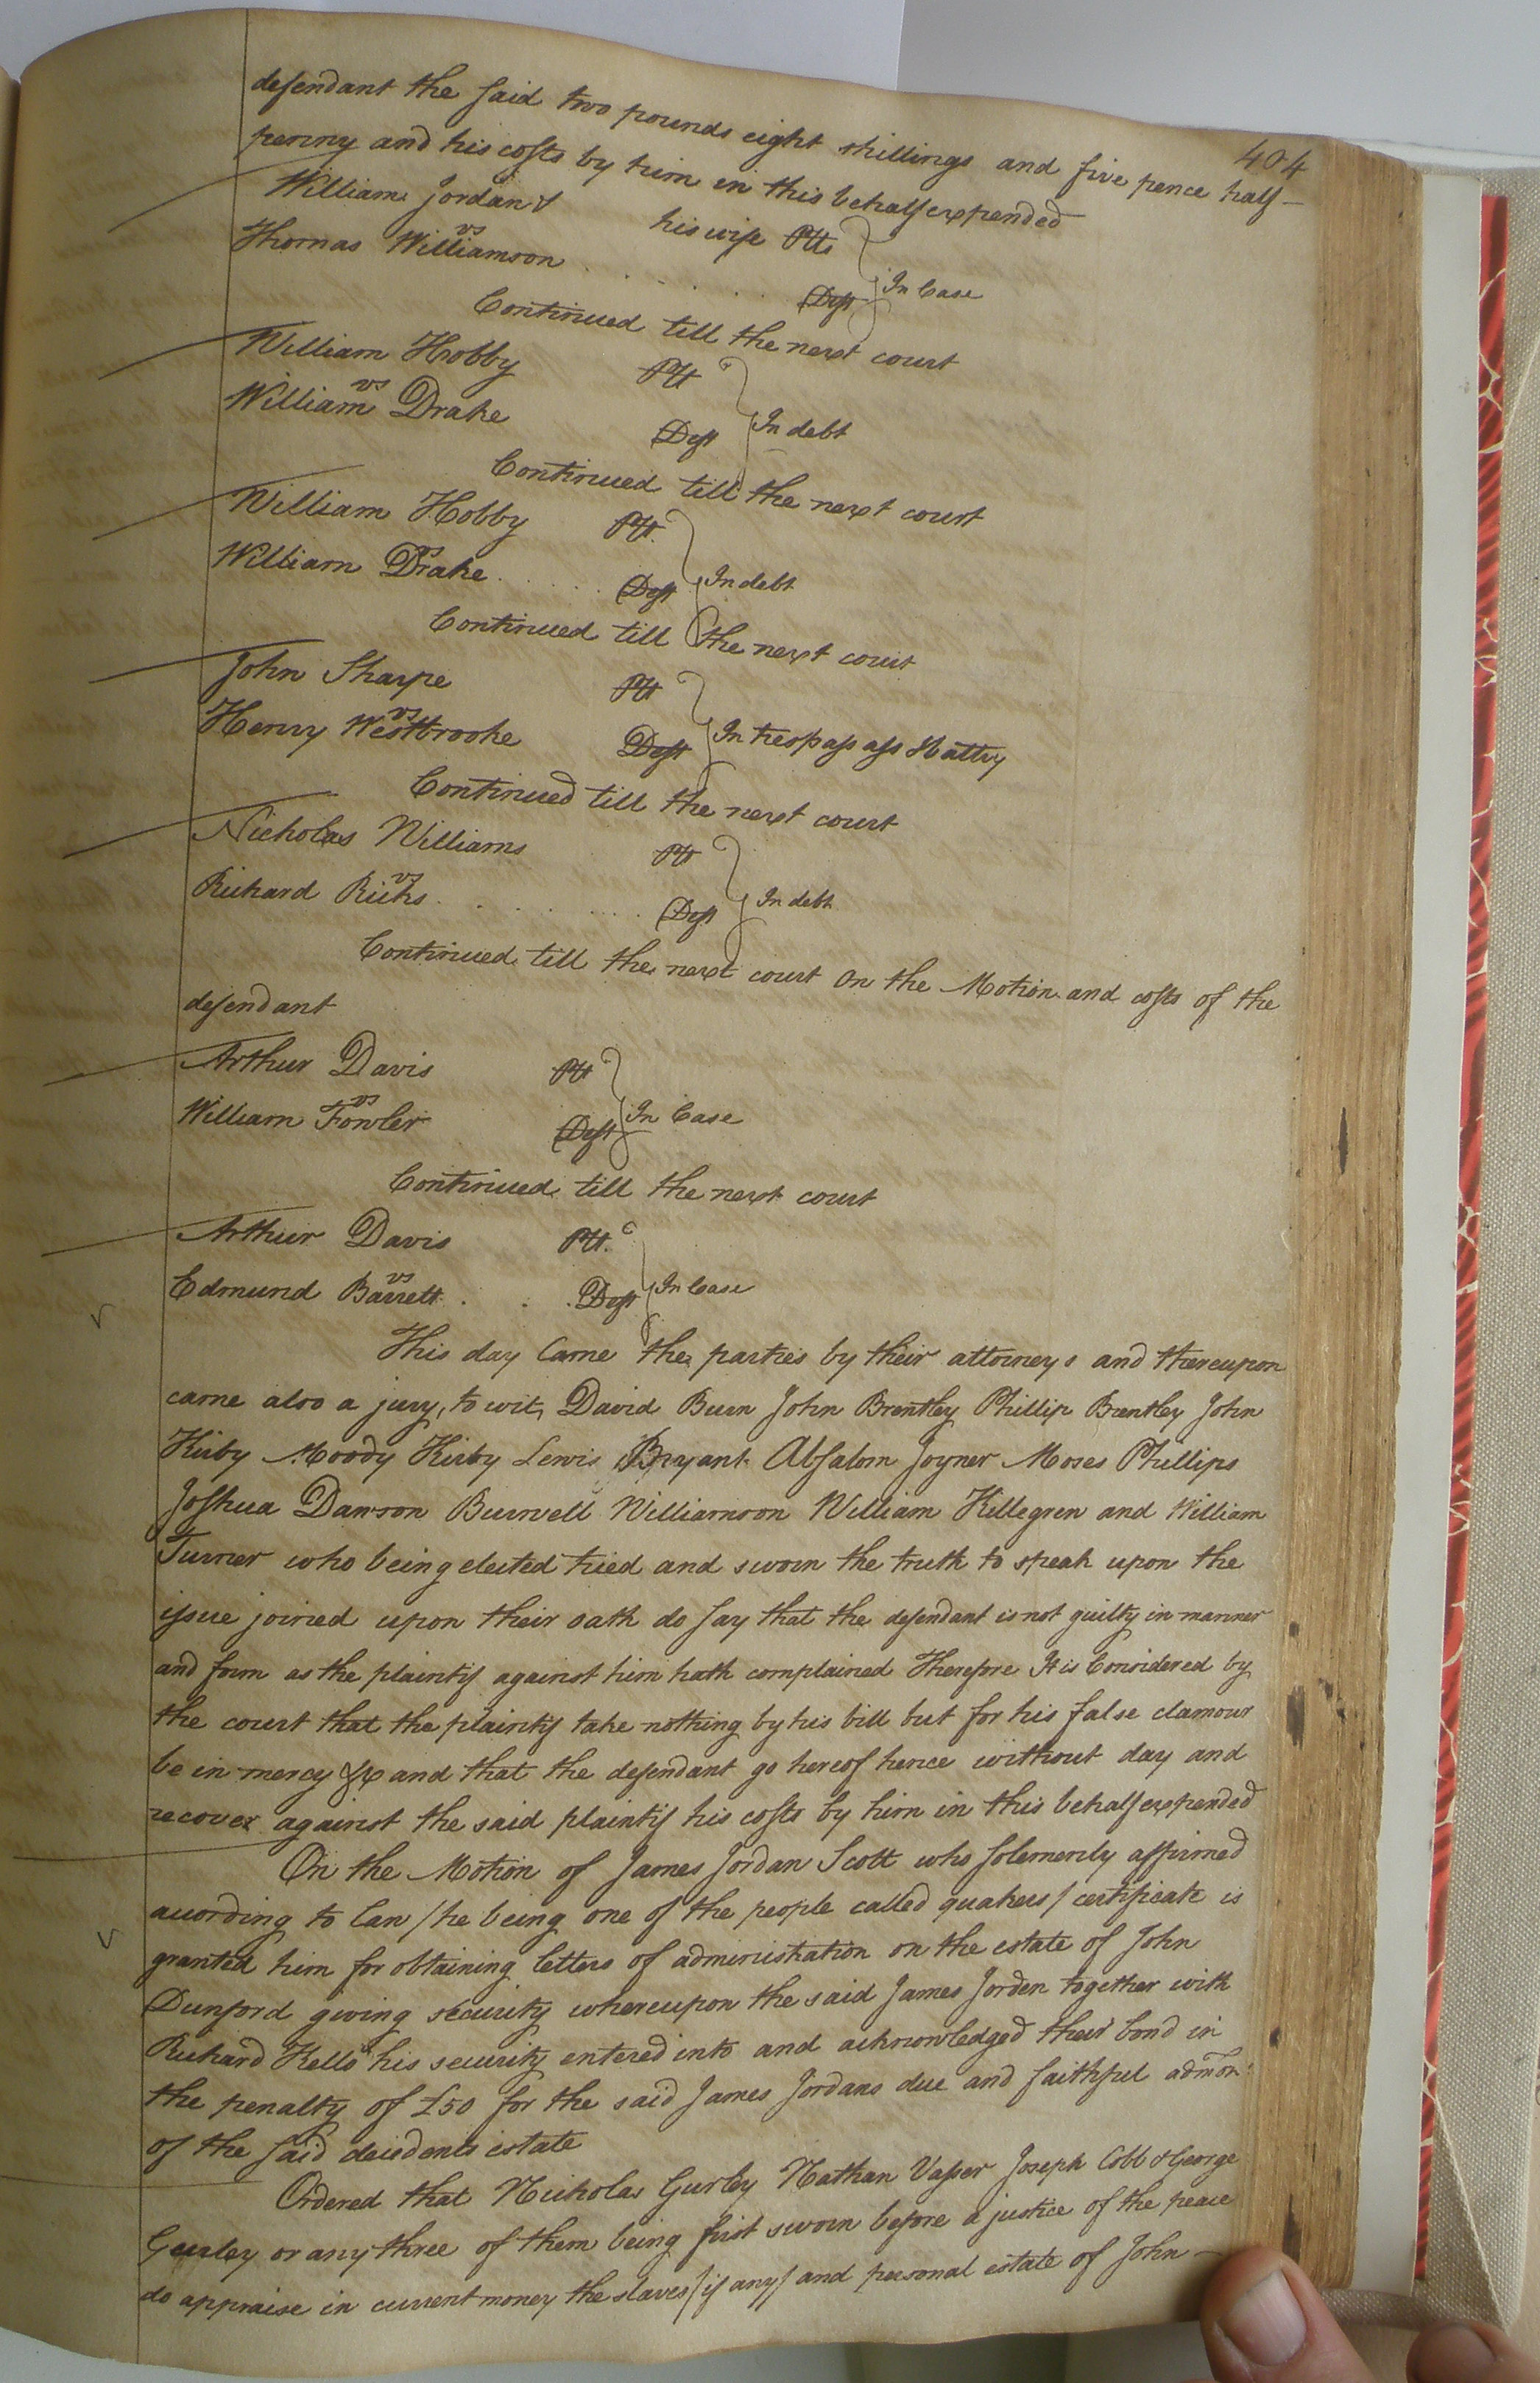 404
defendant the said two pounds eight shillings and five pence half-
penny and his costs by him in this behalf expended
William Jordan & his wife Plts
vs
Thomas Williamson . . . . . . Deft
In Case
Continued till the next court
William Hobby Plt
vs
William Drake Deft
In debt
Continued till the next court
William Hobby Plt
vs
William Drake . . . . Deft
In debt
Continued till the next court
John Sharpe Plt
vs
Henry Westbrooke Deft
In trespass ass & battry
Continued till the next court
Nicholas Williams Plt
vs
Richard Ricks . . . . . . Deft
In debt
Continued till the next court on the Motion and costs of the
defendant
Arthur Davis Plt
vs
William Fowler Deft
In Case
Continued till the next court
Arthur Davis Plt
vs
Edmund Barrett . . . Deft
In Case
This day Came the parties by their attorneys and thereupon
came also a jury, to wit, David Burn John Brantley Phillip Brantley John
Kirby Moody Kirby Lewis Bryant Absalom Joyner Moses Phillips
Joshua Dawson Burwell Williamson William Killegren and William
Turner who being elected tried and sworn the truth to speak upon the
issue joined upon their oath do say that the defendant is not guilty in manner
and form as the plaintif against him hath complained Therefore It is Considered by
the court that the plaintif take nothing by his bill but for his false clamour
be in mercy &c and that the defendant go hereof hence without day and
recover against the said plaintif his costs by him in this behalf expended
On the Motion of James Jordan Scott who solemenly affirmed
according to Law / he being one of the people called quakers / certificate is
granted him for obtaining letters of administration on the estate of John
Dunford giving security whereupon the said James Jorden together with
Richard Kello his security entered into and acknowledged their bond in
the penalty of £50 for the said James Jordans due and faithful admon:
of the said decedents estate
Ordered that Nicholas Gurley Nathan Vasser Joseph Cobb & George
Gurley or any three of them being first sworn before a justice of the peace
do appraise in current money the slaves / if any / and personal estate of John -